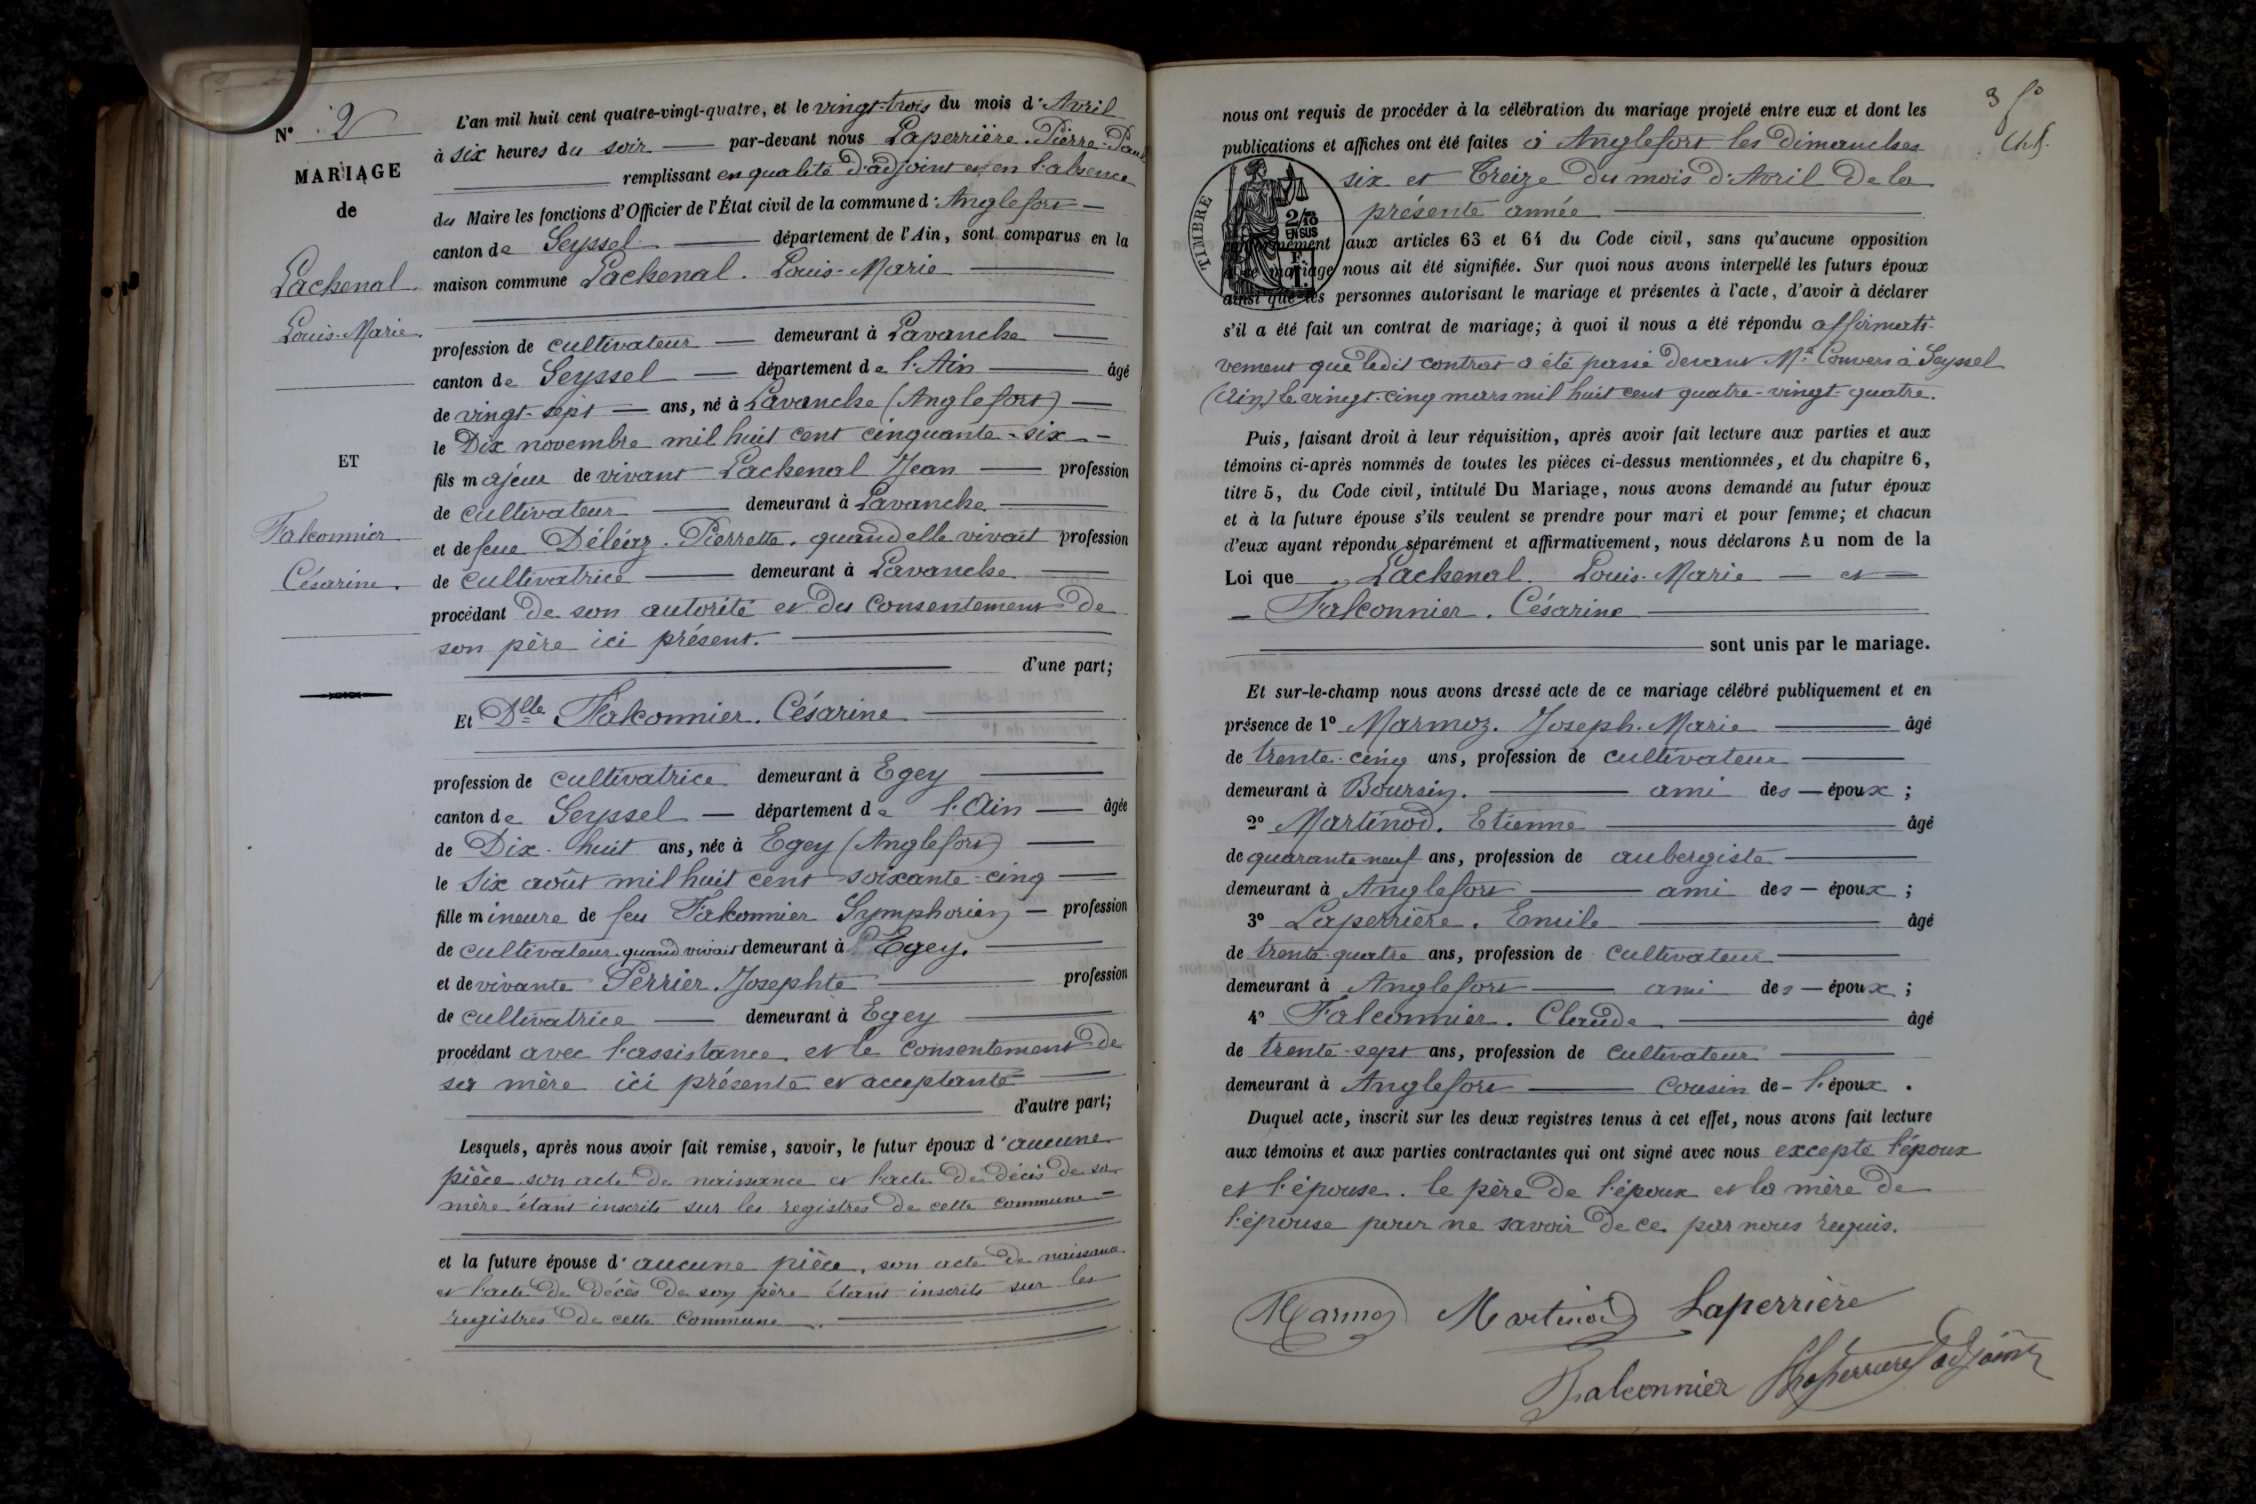 N° 2
MARIAGE
de
Lachenal
Louis-Marie
ET
Falconnier
Césarine.
L'an mil huit cent quatre-vingt-quatre, et le vingt-trois du mois d'Avril
à six heures du soir — par-devant nous Laperrière Pierre-Paul
remplissant en qualité d'adjoint et en l'absence
du Maire les fonctions d'Officier de l'État civil de la commune d'Anglefort —
canton de Seyssel — département de l'Ain, sont comparus en la
maison commune Lachenal. Louis-Marie
profession de cultivateur — demeurant à Lavanche
canton de Seyssel — département de l'Ain — âgé
de vingt-sept — ans, né à Lavanche (Anglefort) —
le Dix novembre mil huit cent cinquante-six —
fils majeur de vivant Lachenal Jean — profession
de cultivateur — demeurant à Lavanche
et de feue Déléaz. Pierrette. quand elle vivait profession
de cultivatrice — demeurant à Lavanche
procédant de son autorité et du consentement de
son père ici présent.
d'une part;
Et Dlle Falconnier. Césarine
profession de cultivatrice demeurant à Egey
canton de Seyssel — département de l'Ain — âgée
de Dix-huit ans, née à Egey (Anglefort) —
le Six août mil huit cent soixante-cinq —
fille mineure de feu Falconnier Symphorien — profession
de cultivateur quand vivait demeurant à Egey.
et de vivante Perrier. Josephte — profession
de cultivatrice — demeurant à Egey
procédant avec l'assistance et le consentement de
sa mère ici présente et acceptante
d'autre part;
Lesquels, après nous avoir fait remise, savoir, le futur époux d'aucune
pièce son acte de naissance et l'acte de décès de sa
mère étant inscrits sur les registres de cette commune —
et la future épouse d'aucune pièce, son acte de naissance
et l'acte de décès de son père étant inscrits sur les
registres de cette commune.
3 fo
nous ont requis de procéder à la célébration du mariage projeté entre eux et dont les
publications et affiches ont été faites à Anglefort les dimanches
six et Treize du mois d'Avril de la
présente année
TIMBRE
2/10
EN SUS
aux articles 63 et 64 du Code civil, sans qu'aucune opposition
mariage nous ait été signifiée. Sur quoi nous avons interpellé les futurs époux
ainsi que les personnes autorisant le mariage et présentes à l'acte, d'avoir à déclarer
s'il a été fait un contrat de mariage; à quoi il nous a été répondu affirmati-
vement que ledit contrat a été passé devant Me Convers à Seyssel
(Ain) le vingt-cinq mars mil huit cent quatre-vingt-quatre.
Puis, faisant droit à leur réquisition, après avoir fait lecture aux parties et aux
témoins ci-après nommés de toutes les pièces ci-dessus mentionnées, et du chapitre 6,
titre 5, du Code civil, intitulé Du Mariage, nous avons demandé au futur époux
et à la future épouse s'ils veulent se prendre pour mari et pour femme; et chacun
d'eux ayant répondu séparément et affirmativement, nous déclarons Au nom de la
Loi que Lachenal Louis-Marie — et —
— Falconnier. Césarine
sont unis par le mariage.
Et sur-le-champ nous avons dressé acte de ce mariage célébré publiquement et en
présence de 1° Marmoz. Joseph-Marie — âgé
de trente-cinq ans, profession de cultivateur
demeurant à Boursin. — ami des — époux;
2° Martinod. Etienne — âgé
de quarante-neuf ans, profession de aubergiste
demeurant à Anglefort — ami des — époux;
3° Laperrière. Emile — âgé
de trente-quatre ans, profession de cultivateur
demeurant à Anglefort — ami des — époux;
4° Falconnier. Claude — âgé
de trente-sept ans, profession de cultivateur
demeurant à Anglefort — cousin de — l'époux.
Duquel acte, inscrit sur les deux registres tenus à cet effet, nous avons fait lecture
aux témoins et aux parties contractantes qui ont signé avec nous excepté l'époux
et l'épouse. le père de l'époux et la mère de
l'épouse pour ne savoir de ce par nous requis.
Marmoz Martinod Laperrière
Falconnier Laperrière adjoint